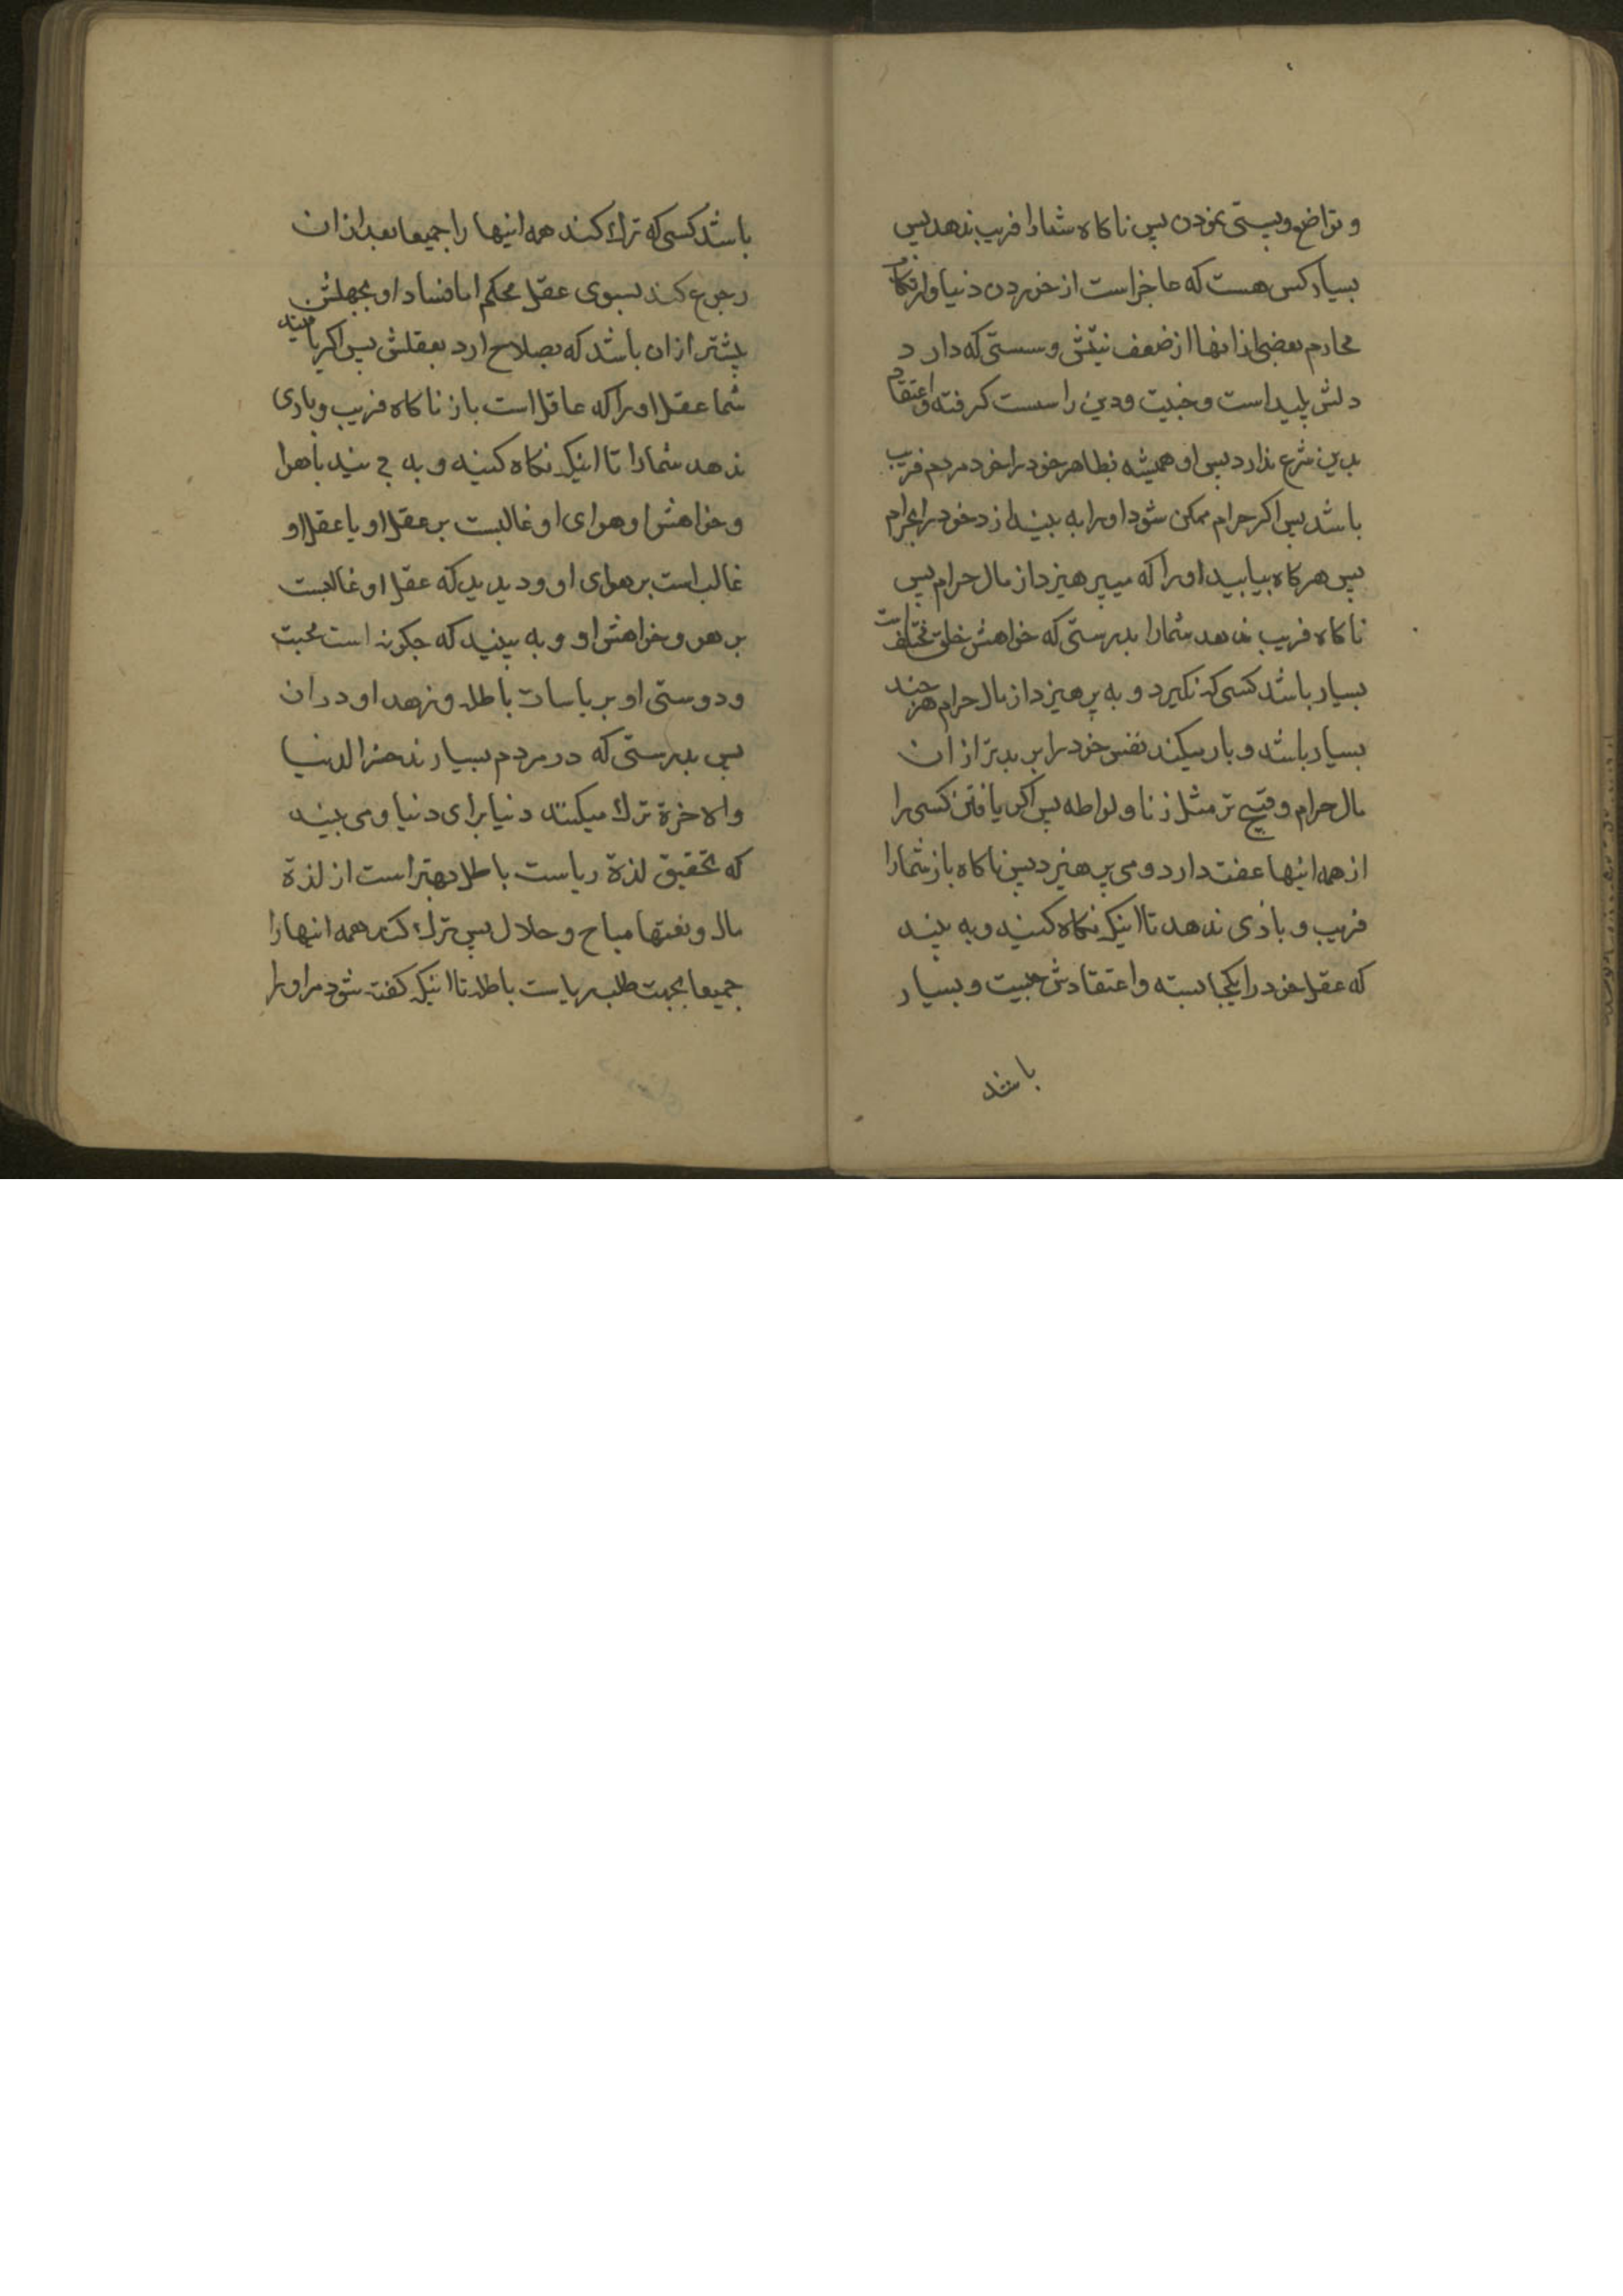 و تواضع و پستی نمودن پس ناکاه شما را فریب ندهد پس
بسیار کس هست که عاجز است از خوردن دنیا و ارتکاب
محارم بعضی از انها از ضعف نیتش و سستی که دارد
دلش پلید است و خبیث و دین را سست کرفته و اعتقاد
بدین شرع ندارد پس او همیشه بظاهر خود را خود مردم فریب
باشد پس اکر حرام ممکن شود او را به بیند ازد خود را بحرام
پس هر کاه بیابید او را که میپرهیزد از مال حرام پس
ناکاه فریب ندهد شما را بدرستی که خواهش خلق مختلف است
بسیار باشد کسی که نکیرد و به پرهیزد از مال حرام هر چند
بسیار باشد و بار میکند نفس خود را بر بدتر از ان
مال حرام و قبیح تر مثل زنا و لواطه پس اکر یافتن کسی را
از همه اینها عفت دارد و می پرهیزد پس ناکاه باز شما را
فریب و باذی ندهد تا اینکه نکاه کنید و به بیند
که عقل خود را یکجا بسته و اعتقادش خبیث و بسیار
باشد
باشد کسی که ترک کند همه اینها را جمیعا بعد از ان
رجوع کند بسوی عقل محکم اما فساد او بجهلش
بیشتر از ان باشد که بصلاح ارد بعقلش پس اکر یافتید
شما عقل او را که عاقل است باز ناکاه فریب و باذی
ندهد شما را تا اینکه نکاه کنید و به بیند باهوا
و خواهش او هوای او غالبست بر عقل او یا عقل او
غالب است بر هوای او و دیدید که عقل او غالبست
بر هو و خواهش او و به بینید که چکونه است محبت
و دوستی او بر یاسات باطله و زهد او در ان
پس بدرستی که در مردم بسیارند خسر الدنیا
والاخرة ترک میکنند دنیا برای دنیا و می بیند
که بتحقیق لذة ریاست باطله بهتر است از لذة
مال و نعمتها مباح و حلال پس ترک کند همه اینها را
جمیعا بجهت طلب ریاست باطله تا اینکه کفته شود مر او را